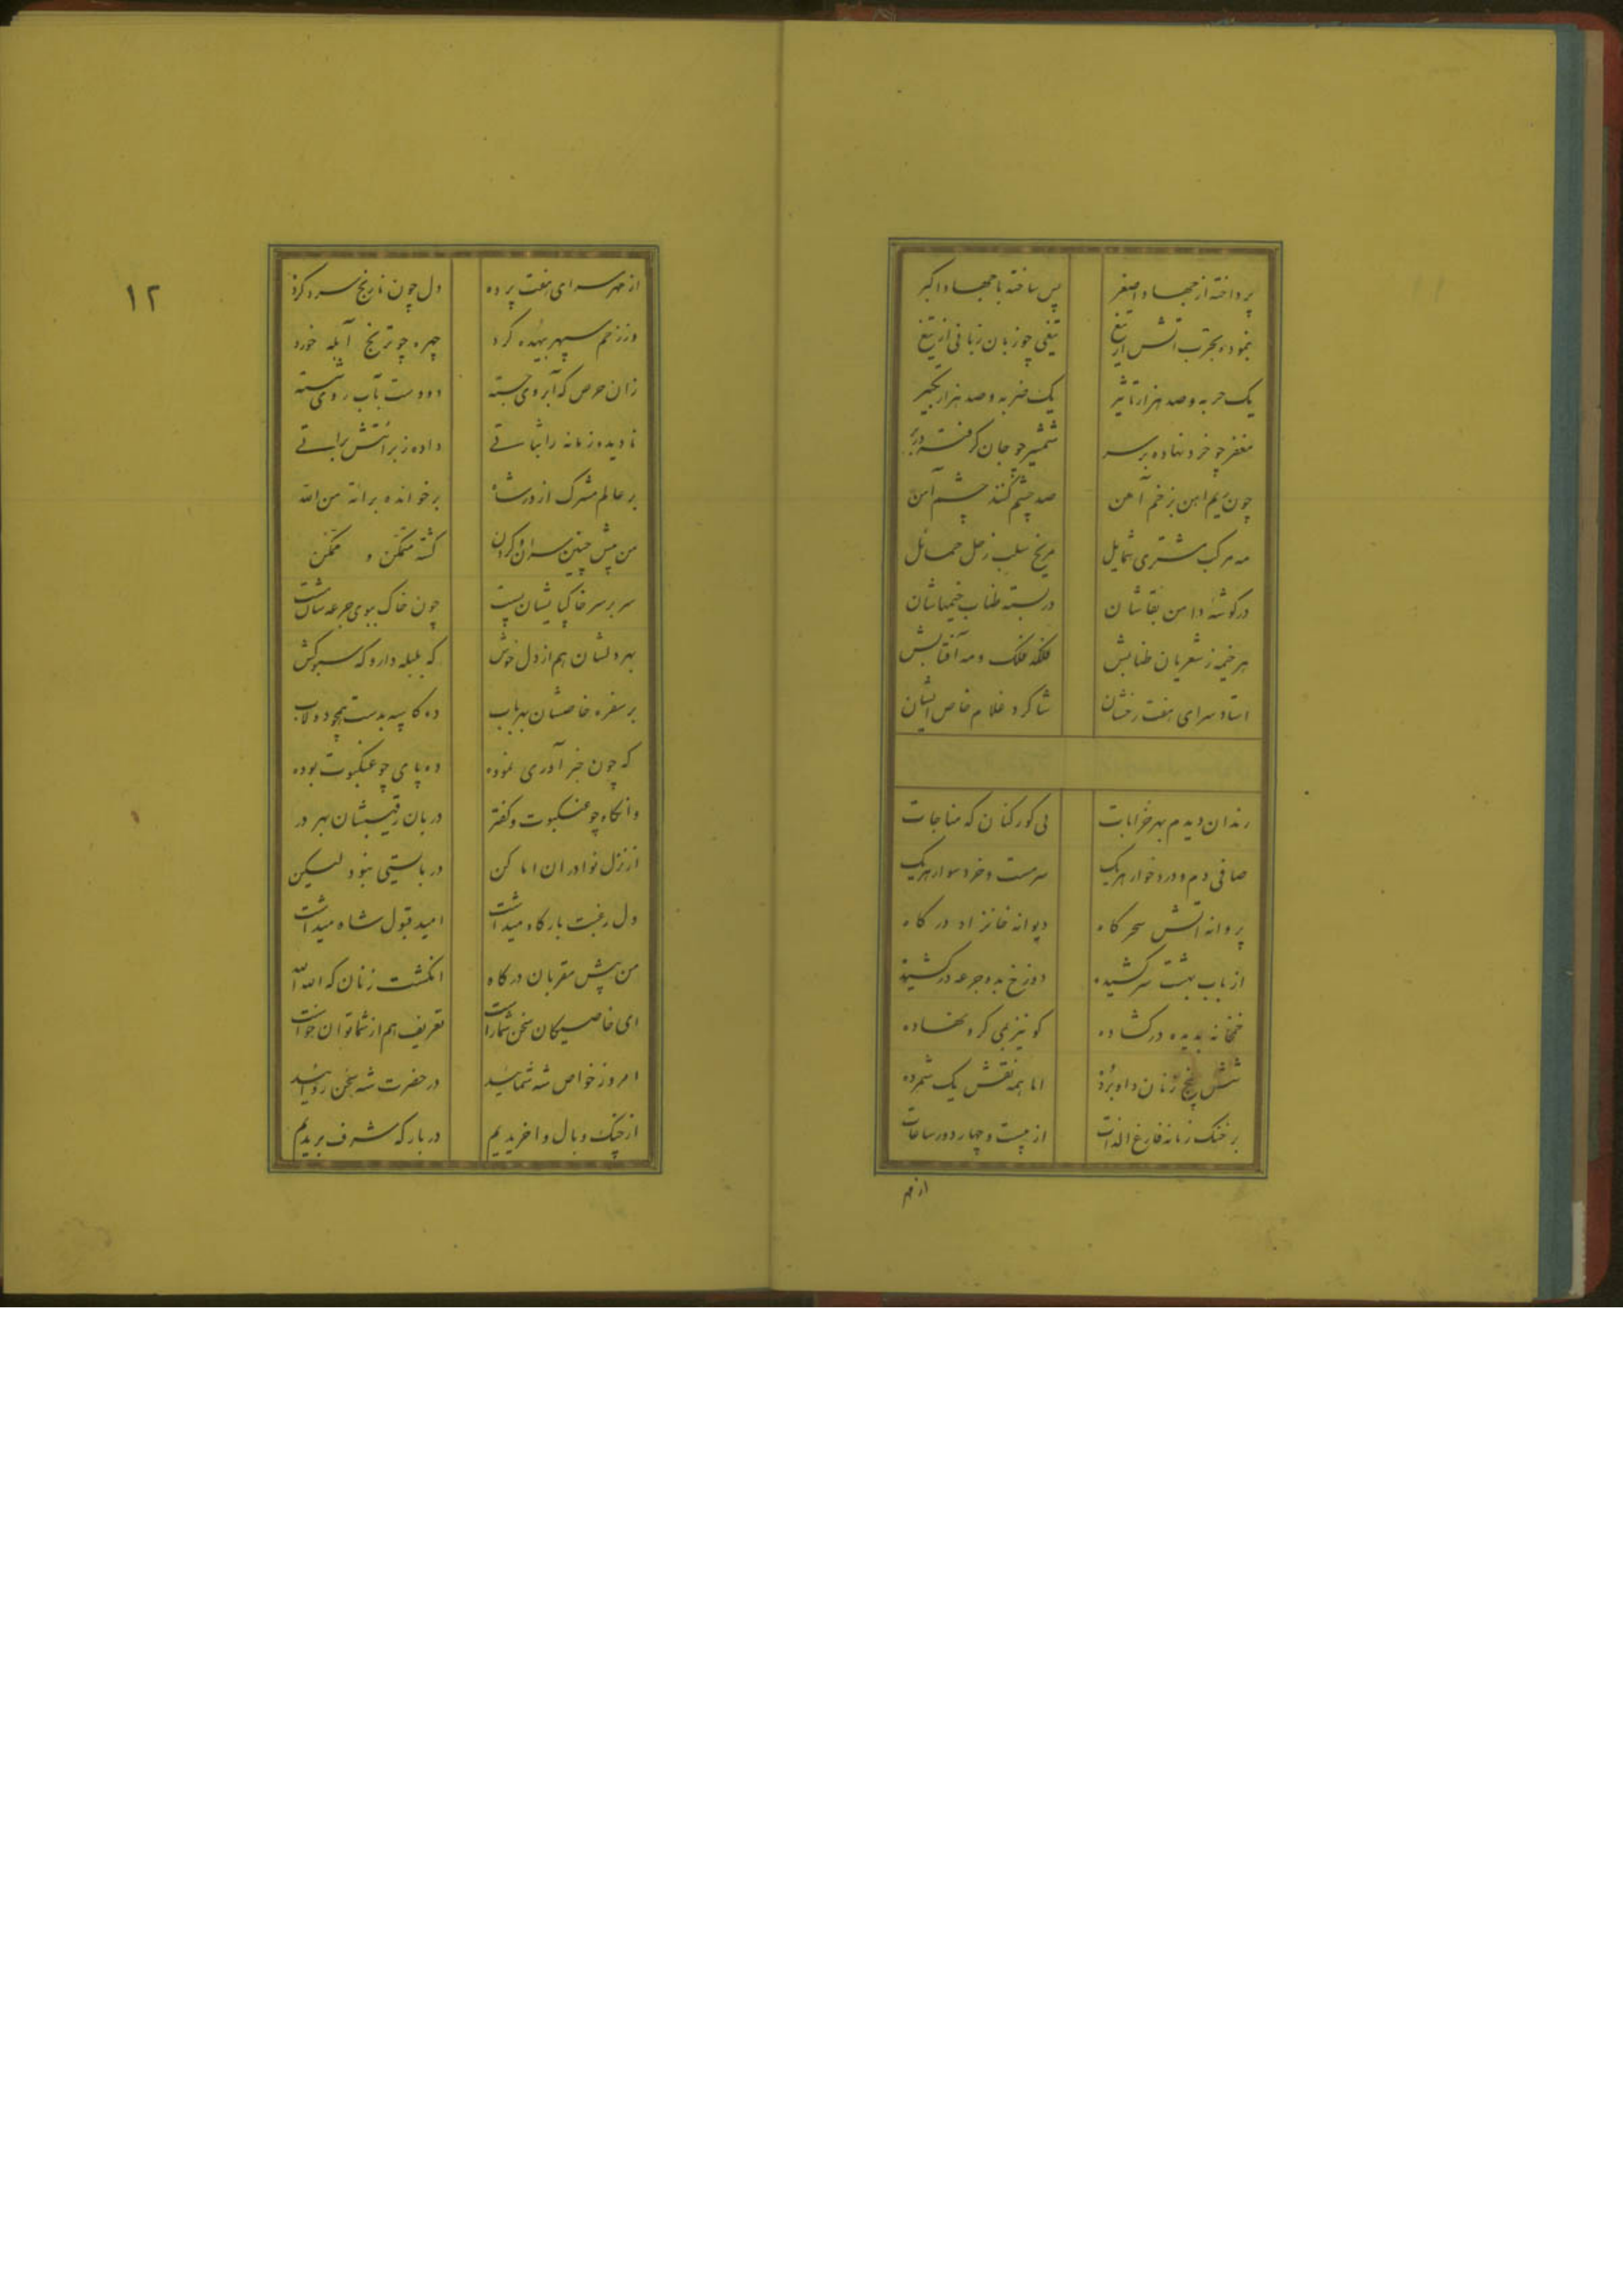 پرداخته از جهاد اصغر پس ساخته با جهاد اکبر
بنموده بحرب آتش از تیغ تیغی چو زبان زبانی از تیغ
یک حربه و صد هزار تاثیر یک ضربه و صد هزار تکبیر
مغفر چو خرد نهاده بر سر شمشیر چو جان گرفته در بر
چون ریم اهن بزخم آهن صد چشم کنند چشم آهن
مه مرکب مشتری شمایل مریخ سلب زحل حمایل
در گوشهٔ دامن بقاشان در بسته طناب خیمهاشان
هر خیمه ز شعریان طنابش فلکه فلک و مه آفتابش
استاد سرای هفت رخشان شاکرد غلام خاص ایشان
رندان دیدم بهر خرابات بی کور کنان که مناجات
صافی دم و درد خوار هریک سرمست و خرد سوار هریک
پروانه آتش سحرگاه دیوانه خانزاد درگاه
از باب بهشت سر کشیده دوزخ بدو جرعه در کشیده
خمخانه بدیده در کشاده کونین بمی کرو نهاده
شش پنج زنان داو برده اما همه نقش یک شمرده
بر خنک زمانه فارغ الذات از بیست و چهار دور ساعات
از مهر
١٢
از مهر سرای هفت پرده دل چون نارنج سرد کرده
وز زخم سپهر بیهده کرد چهره چو ترنج آبله خورد
زان حرص که آبروی جسته دو دست بآب روی شسته
نادیده زمانه را ثباتی داده ز برائتش براتی
بر عالم مشرک از در شاه برخوانده براءة من الله
من پیش چنین سران و گردن گشته متمکن و ممکن
سر بر سر خاکپایشان پست چون خاک ببوی جرعه شان مست
بهر دلشان هم از دل خوش که بلبله دار و که سبوکش
بر سفره خاصشان بهر باب ده کاسه بدست همچو دولاب
که چون خبر آدری نموده ده پای چو عنکبوت بوده
وانگاه چو عنکبوت و کفتر دربان رقیبشان بهر در
از نزل نوادران اماکن دربایستی نبود لیکن
دل رغبت بارگاه میداشت امید قبول شاه میداشت
من پیش مقربان درگاه انگشت زنان که الله الله
ای خاصیکان سخن شماراست تعریف هم از شما توان خواست
امروز خواص شه شمائید در حضرت شه سخن روائید
از چنگ وبال واخریدیم در بارگه شرف بریدیم